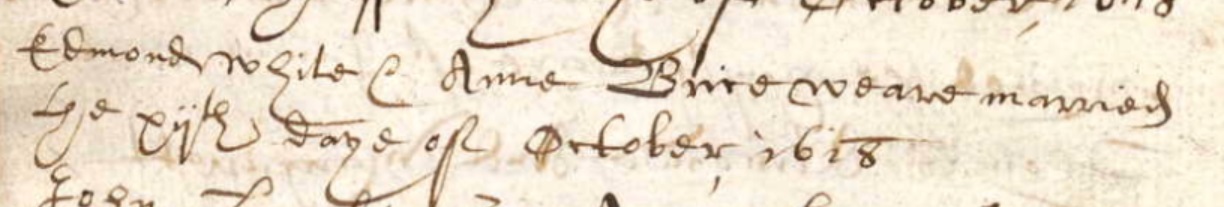 of October, 1618
Edmond White & Anne Brice weare married
the xijth daye of October, 1618
John